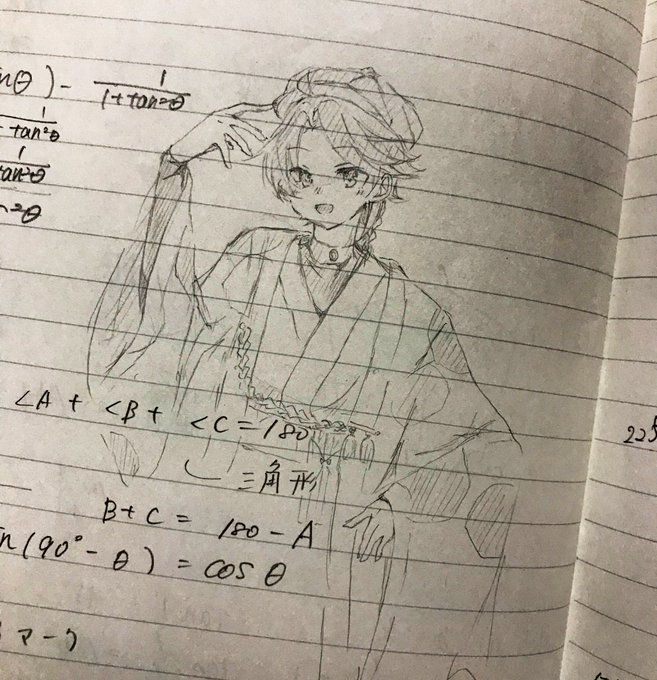 nθ) - 1/(1+tan²θ)
1/tan²θ
1/tan²θ
²θ
∠A + ∠B + ∠C = 180
三角形
B+C = 180-A
in(90°-θ) = cosθ
マーク
225